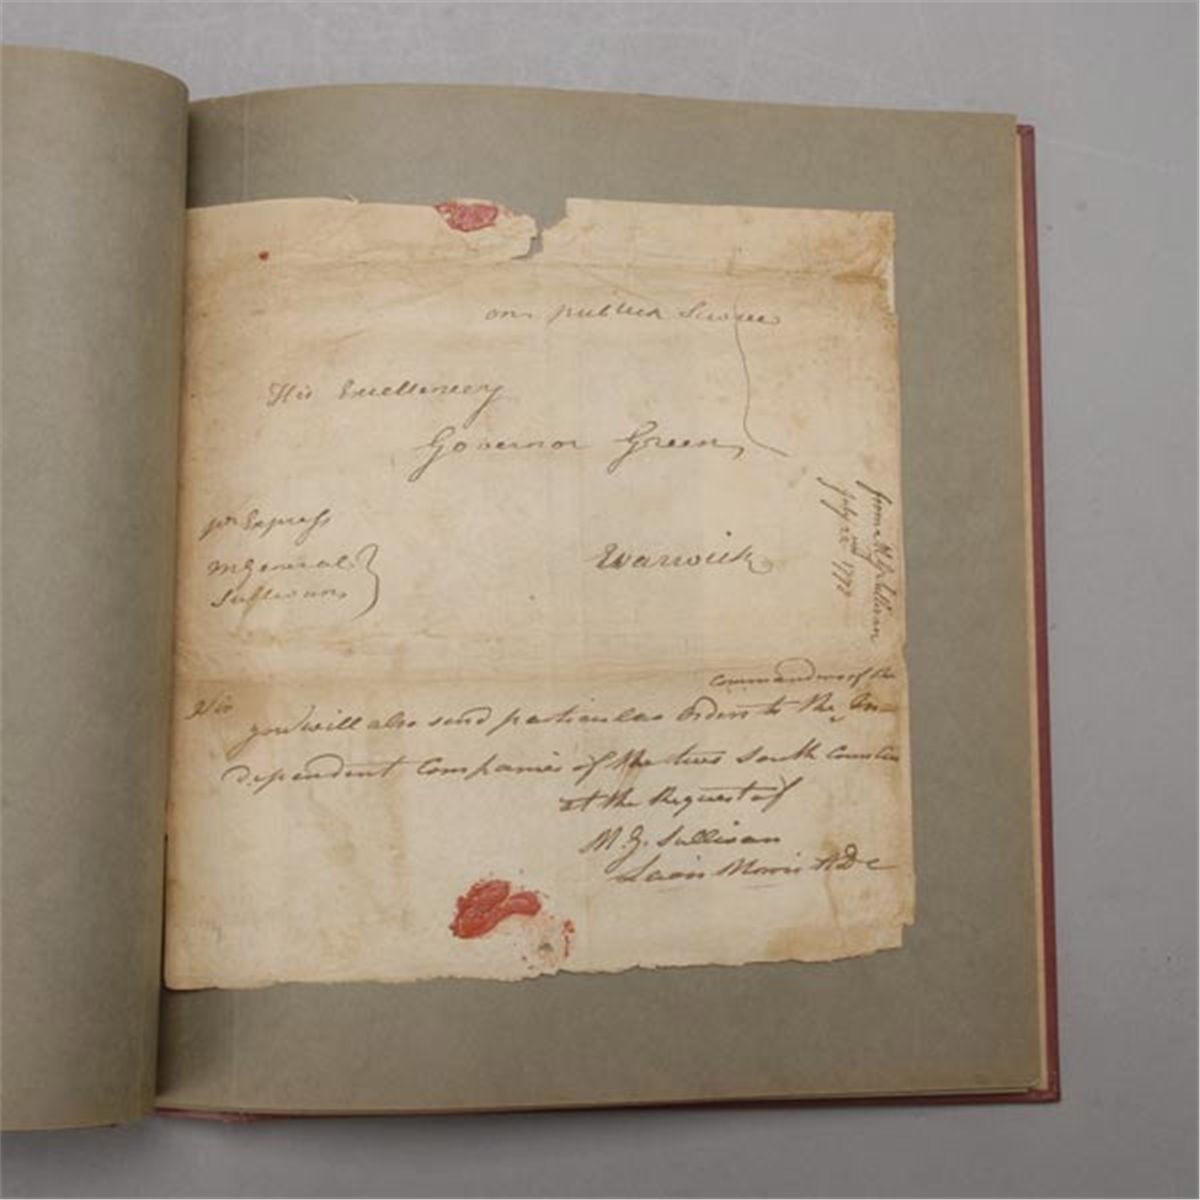 on publick Service
His Excellencey
Governor Green
Warwick
pr Express
M General
Sullivan
from M G Sullivan
July 22nd 1778
Sir
Commanders of the
you will also send particular Orders to the In=
dependent Companies of the two South Counties
at the Request of
M. G. Sullivan
Lewis Morris ADC